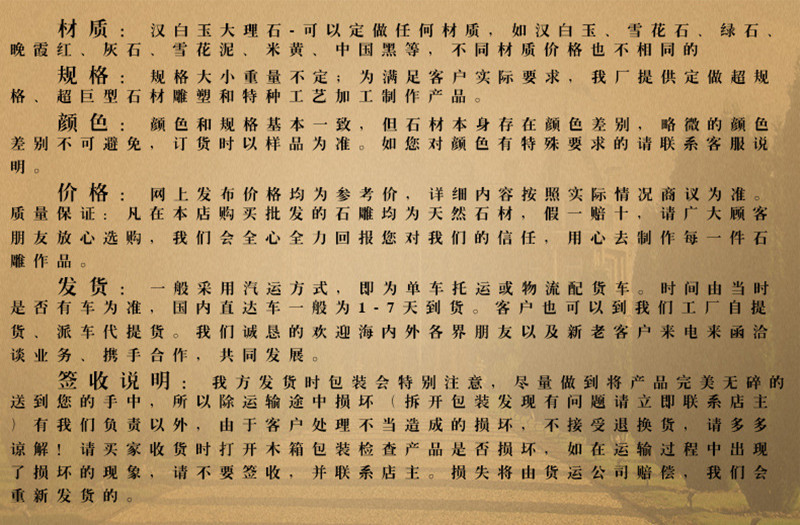 材质：汉白玉大理石-可以定做任何材质，如汉白玉、雪花石、绿石、
晚霞红、灰石、雪花泥、米黄、中国黑等，不同材质价格也不相同的
规格：规格大小重量不定；为满足客户实际要求，我厂提供定做超规
格、超巨型石材雕塑和特种工艺加工制作产品。
颜色：颜色和规格基本一致，但石材本身存在颜色差别，略微的颜色
差别不可避免，订货时以样品为准。如您对颜色有特殊要求的请联系客服说
明。
价格：网上发布价格均为参考价，详细内容按照实际情况商议为准。
质量保证：凡在本店购买批发的石雕均为天然石材，假一赔十，请广大顾客
朋友放心选购，我们会全心全力回报您对我们的信任，用心去制作每一件石
雕作品。
发货：一般采用汽运方式，即为单车托运或物流配货车。时间由当时
是否有车为准，国内直达车一般为1-7天到货。客户也可以到我们工厂自提
货、派车代提货。我们诚恳的欢迎海内外各界朋友以及新老客户来电来函洽
谈业务、携手合作，共同发展。
签收说明：我方发货时包装会特别注意，尽量做到将产品完美无碎的
送到您的手中，所以除运输途中损坏（拆开包装发现有问题请立即联系店主
）有我们负责以外，由于客户处理不当造成的损坏，不接受退换货，请多多
谅解！请买家收货时打开木箱包装检查产品是否损坏，如在运输过程中出现
了损坏的现象，请不要签收，并联系店主。损失将由货运公司赔偿，我们会
重新发货的。